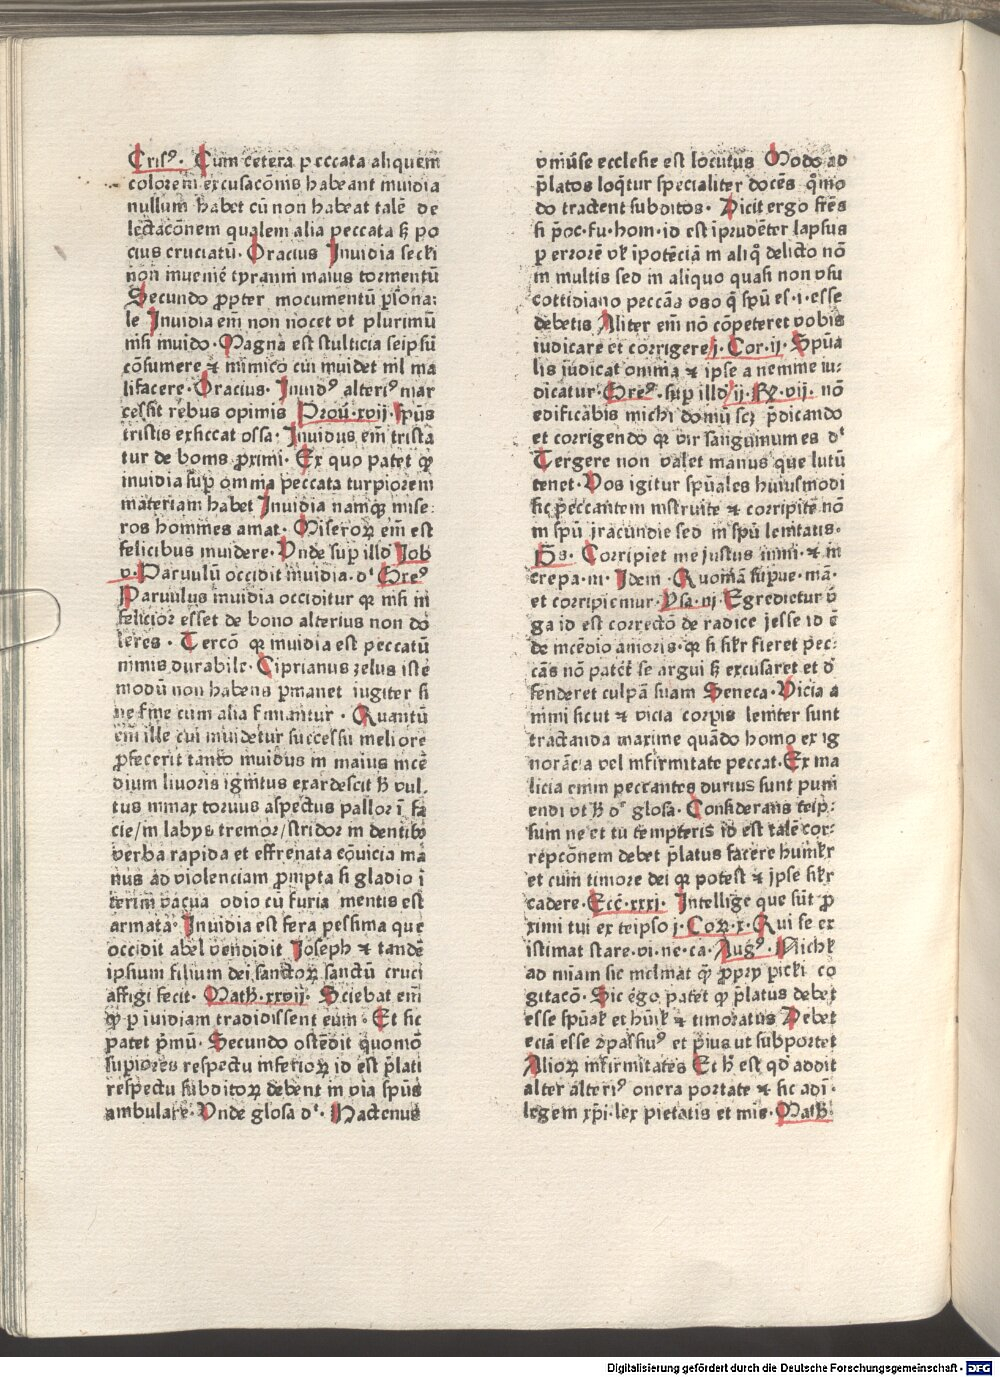 Crisꝰ. Cum cetera peccata aliquem
colorem excusacōnis habeant inuidia
nullum habet cū non habeat talē de
lectacōnem qualem alia peccata sꝫ po
cius cruciatū. Oracius Inuidia siculi
non inueniē tyranni maius tormentū
Secundo ꝓpter nocumentū ꝑsona:
le Inuidia em̄ non nocet vt plurimū
nisi inuido. Magna est stulticia seipsū
cōsumere ⁊ inimico cui inuidet nil ma
lifacere. Oracius. Inuidꝰ alteriꝰ mar
cessit rebus opimis Prou.xvij. spūs
tristis exsiccat ossa. Inuidus em̄ trista
tur de bonis ꝓximi. Ex quo patet ꝙ
inuidia suꝑ omnia peccata turpiorem
materiam habet Inuidia namqꝫ mise:
ros homines amat. Miseroꝝ em̄ est
felicibus inuidere. Vnde suꝑ illd Iob
v. Paruulū occidit inuidia. dᵗ Greꝰ
Paruulus inuidia occiditur qꝛ nisi in
felicior esset de bono alterius non do
leres. Tercō qꝛ inuidia est peccatū
nimis durabile. Ciprianus zelus iste
modū non habens ꝑmanet iugiter si
ne fine cum alia finiantur. Quantū
em̄ ille cui inuidetur successu meliore
ꝓfecerit tanto inuidus in maius incē
dium liuoris ignitus exardescit h̄ vul.
tus minax toruus aspectus pallor ī fa
cie/in labijs tremor/stridor in dentibꝰ
verba rapida et effrenata cōuicia ma
nus ad violenciam ꝓmpta si gladio ī
terim vacua odio cū furia mentis est
armata. Inuidia est fera pessima que
occidit abel vendidit Joseph ⁊ tandē
ipsum filium dei sanctoꝝ sanctū cruci
affigi fecit. Math.xxvij. Sciebat em̄
ꝙ ꝑ īuidiam tradidissent eum. Et sic
patet pͥmū. Secundo ostēdit quoniō
suꝑiores respectu inferioꝝ id est p̄lati
respectu subditoꝝ debent in via spūs
ambulare. Vnde glosa dᵗ. Hactenus
vniūse ecclesie est locutus Modo ad
p̄latos loqͥtur specialiter docēs qͫmo
do tractent subditos. Dicit ergo frēs
si p̄oc. fu. hom. id est īprudēter lapsus
ꝑ errorē vꝉ īpotēciā in aliqͦ delicto nō
in multis sed in aliquo quasi non vsu
cottidiano peccās vos q̄ spū es.i.esse
debetis Aliter em̄ nō cōpeteret vobis
iudicare et corrigere j. Cor. ij. Spūa
lis iudicat omnia ⁊ ipse a nemine iu:
dicatur. Greꝰ. suꝑ illd ij. Re. vij. nō
edificabis michi domū scꝫ p̄dicando
et corrigendo qꝛ vir sanguinum es dᵗ
Tergere non valet manus que lutū
tenet. Vos igitur spūales huiusmodi
sic peccantem instruite ⁊ corripite nō
in spū jracundie sed in spū lenitatis.
Ps. Corripiet me justus in mi. ⁊ in
crepa. m. Idem. Quoniā supue. mā.
et corripiemur. Ysa. xj Egredietur v̄
ga id est correctō de radice jesse id ē
de incēdio amoris. qꝛ si siꝉr fieret pec:
cās nō patet̄ se argui sꝫ excusaret et d̄
fenderet culpā suam Seneca. Vicia a
nimi sicut ⁊ vicia corꝑis leniter sunt
tractanda maxime quādo homo ex ig
norācia vel infirmitate peccat. Ex ma
licia enim peccantes durius sunt puni
endi vt h̄ dᵗ glosa. Considerans teip:
sum ne et tu tempteris id est talē cor:
repcōnem debet p̄latus facere humiꝉr
et cum timore dei qꝛ potest ⁊ ipse siꝉr
cadere. Eccͥ.xxxj. Intellige que sūt ꝓ
ximi tui ex teipso j. Coꝝ. x. Qui se ex
istimat stare. vi. ne. ca. Augꝰ. Nichil
ad miām sic inclinat qͫ ꝓprij ꝑicli co
gitacō. Sic ego patet ꝙ p̄latus debet
esse spūaꝉ et hūiꝉ ⁊ timoratus Debet
eciā esse cōpassiuꝰ et p̄ius ut subportet
Alioꝝ infirmitates Et h̄ est qd addit
alter alteriꝰ onera portate ⁊ sic adī.
legem xp̄i. lex pietatis et mie. Math.
Digitalisierung gefördert durch die Deutsche Forschungsgemeinschaft - DFG